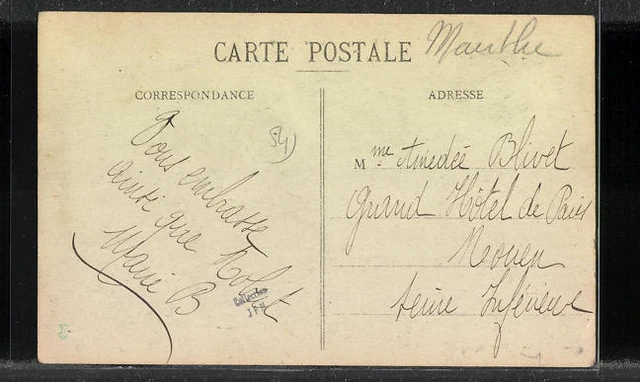 CARTE POSTALE
Manthe
CORRESPONDANCE
ADRESSE
54)
Vous embrasse
ainsi que
Marie B
Collection
M me Amedée Blivet
Grand Hôtel de Paris
Rouen
Seine Inférieure